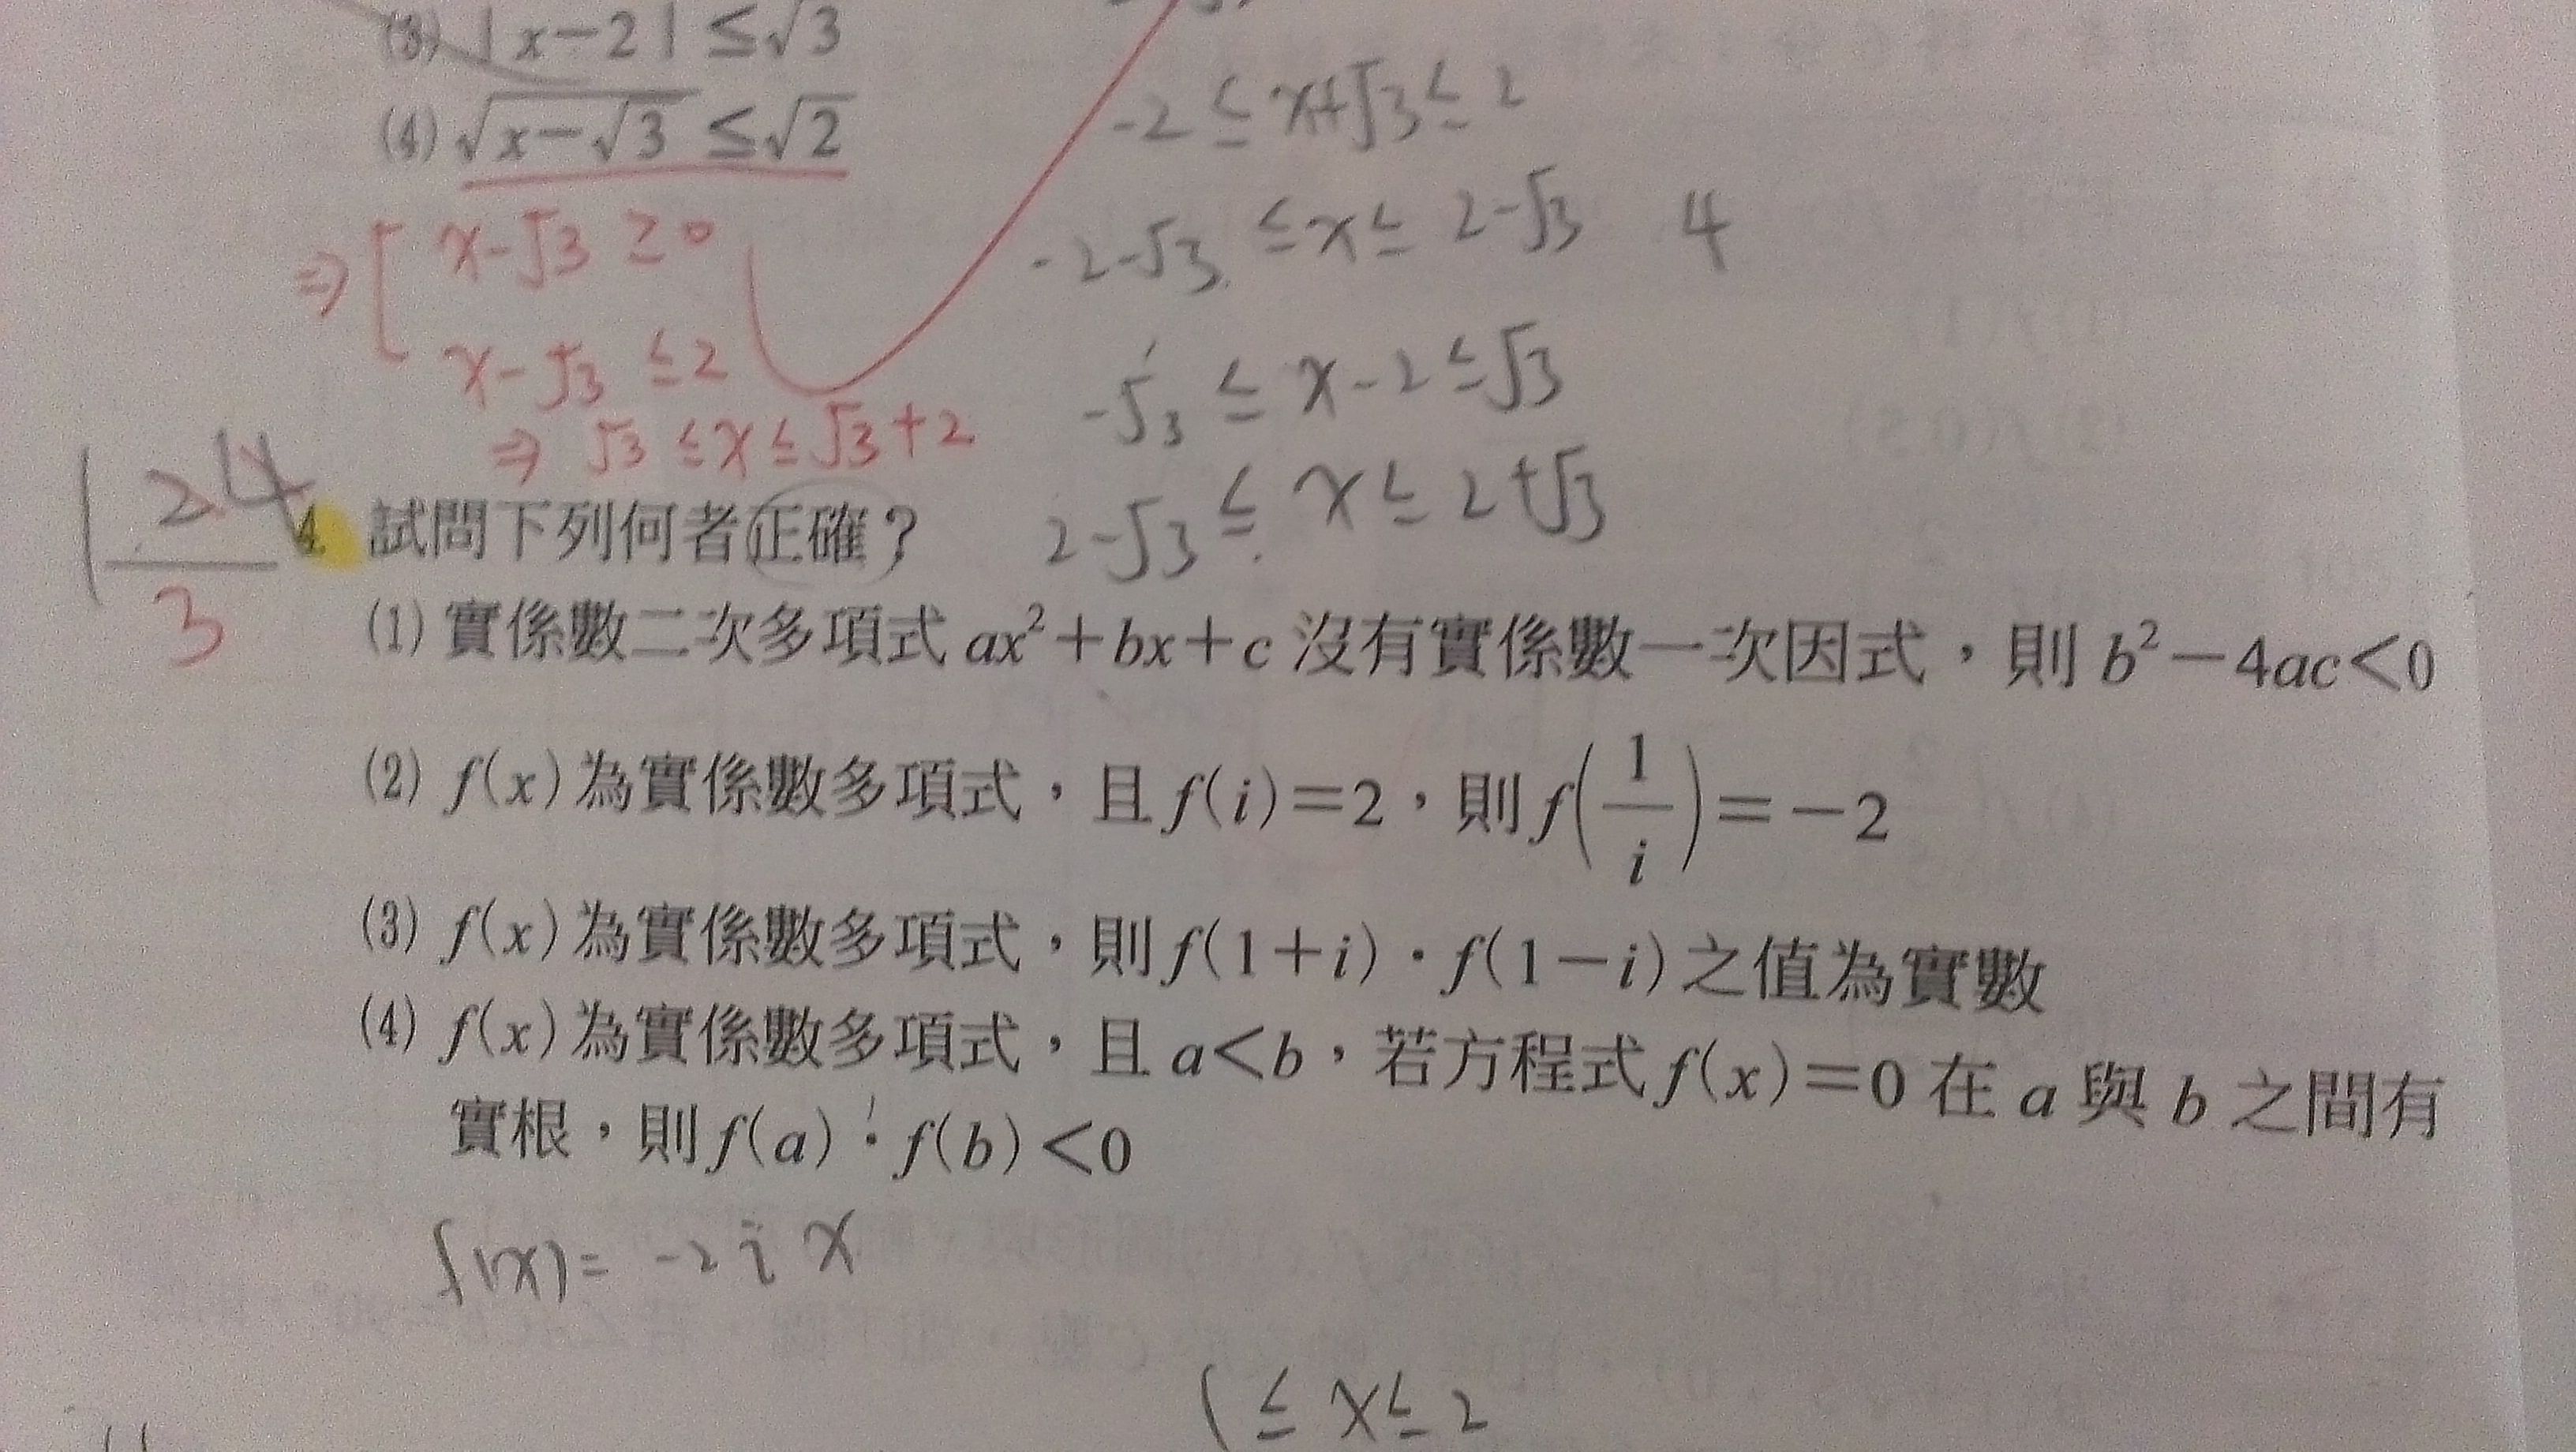 (3) |x-2|≤√3
-2≤x+√3≤2
(4) √(x-√3)≤√2
-2-√3≤x≤2-√3 4
⇒ x-√3≥0
x-√3≤2
-√3≤x-2≤√3
⇒ √3≤x≤√3+2
2-√3≤x≤2+√3
1 2 4
3
4. 試問下列何者正確？
(1) 實係數二次多項式 ax²+bx+c 沒有實係數一次因式，則 b²-4ac<0
(2) f(x)為實係數多項式，且 f(i)=2，則 f(1/i)=-2
(3) f(x)為實係數多項式，則 f(1+i)·f(1-i)之值為實數
(4) f(x)為實係數多項式，且 a<b，若方程式 f(x)=0 在 a 與 b 之間有
實根，則 f(a)·f(b)<0
f(x)= -2ix
1≤x≤2